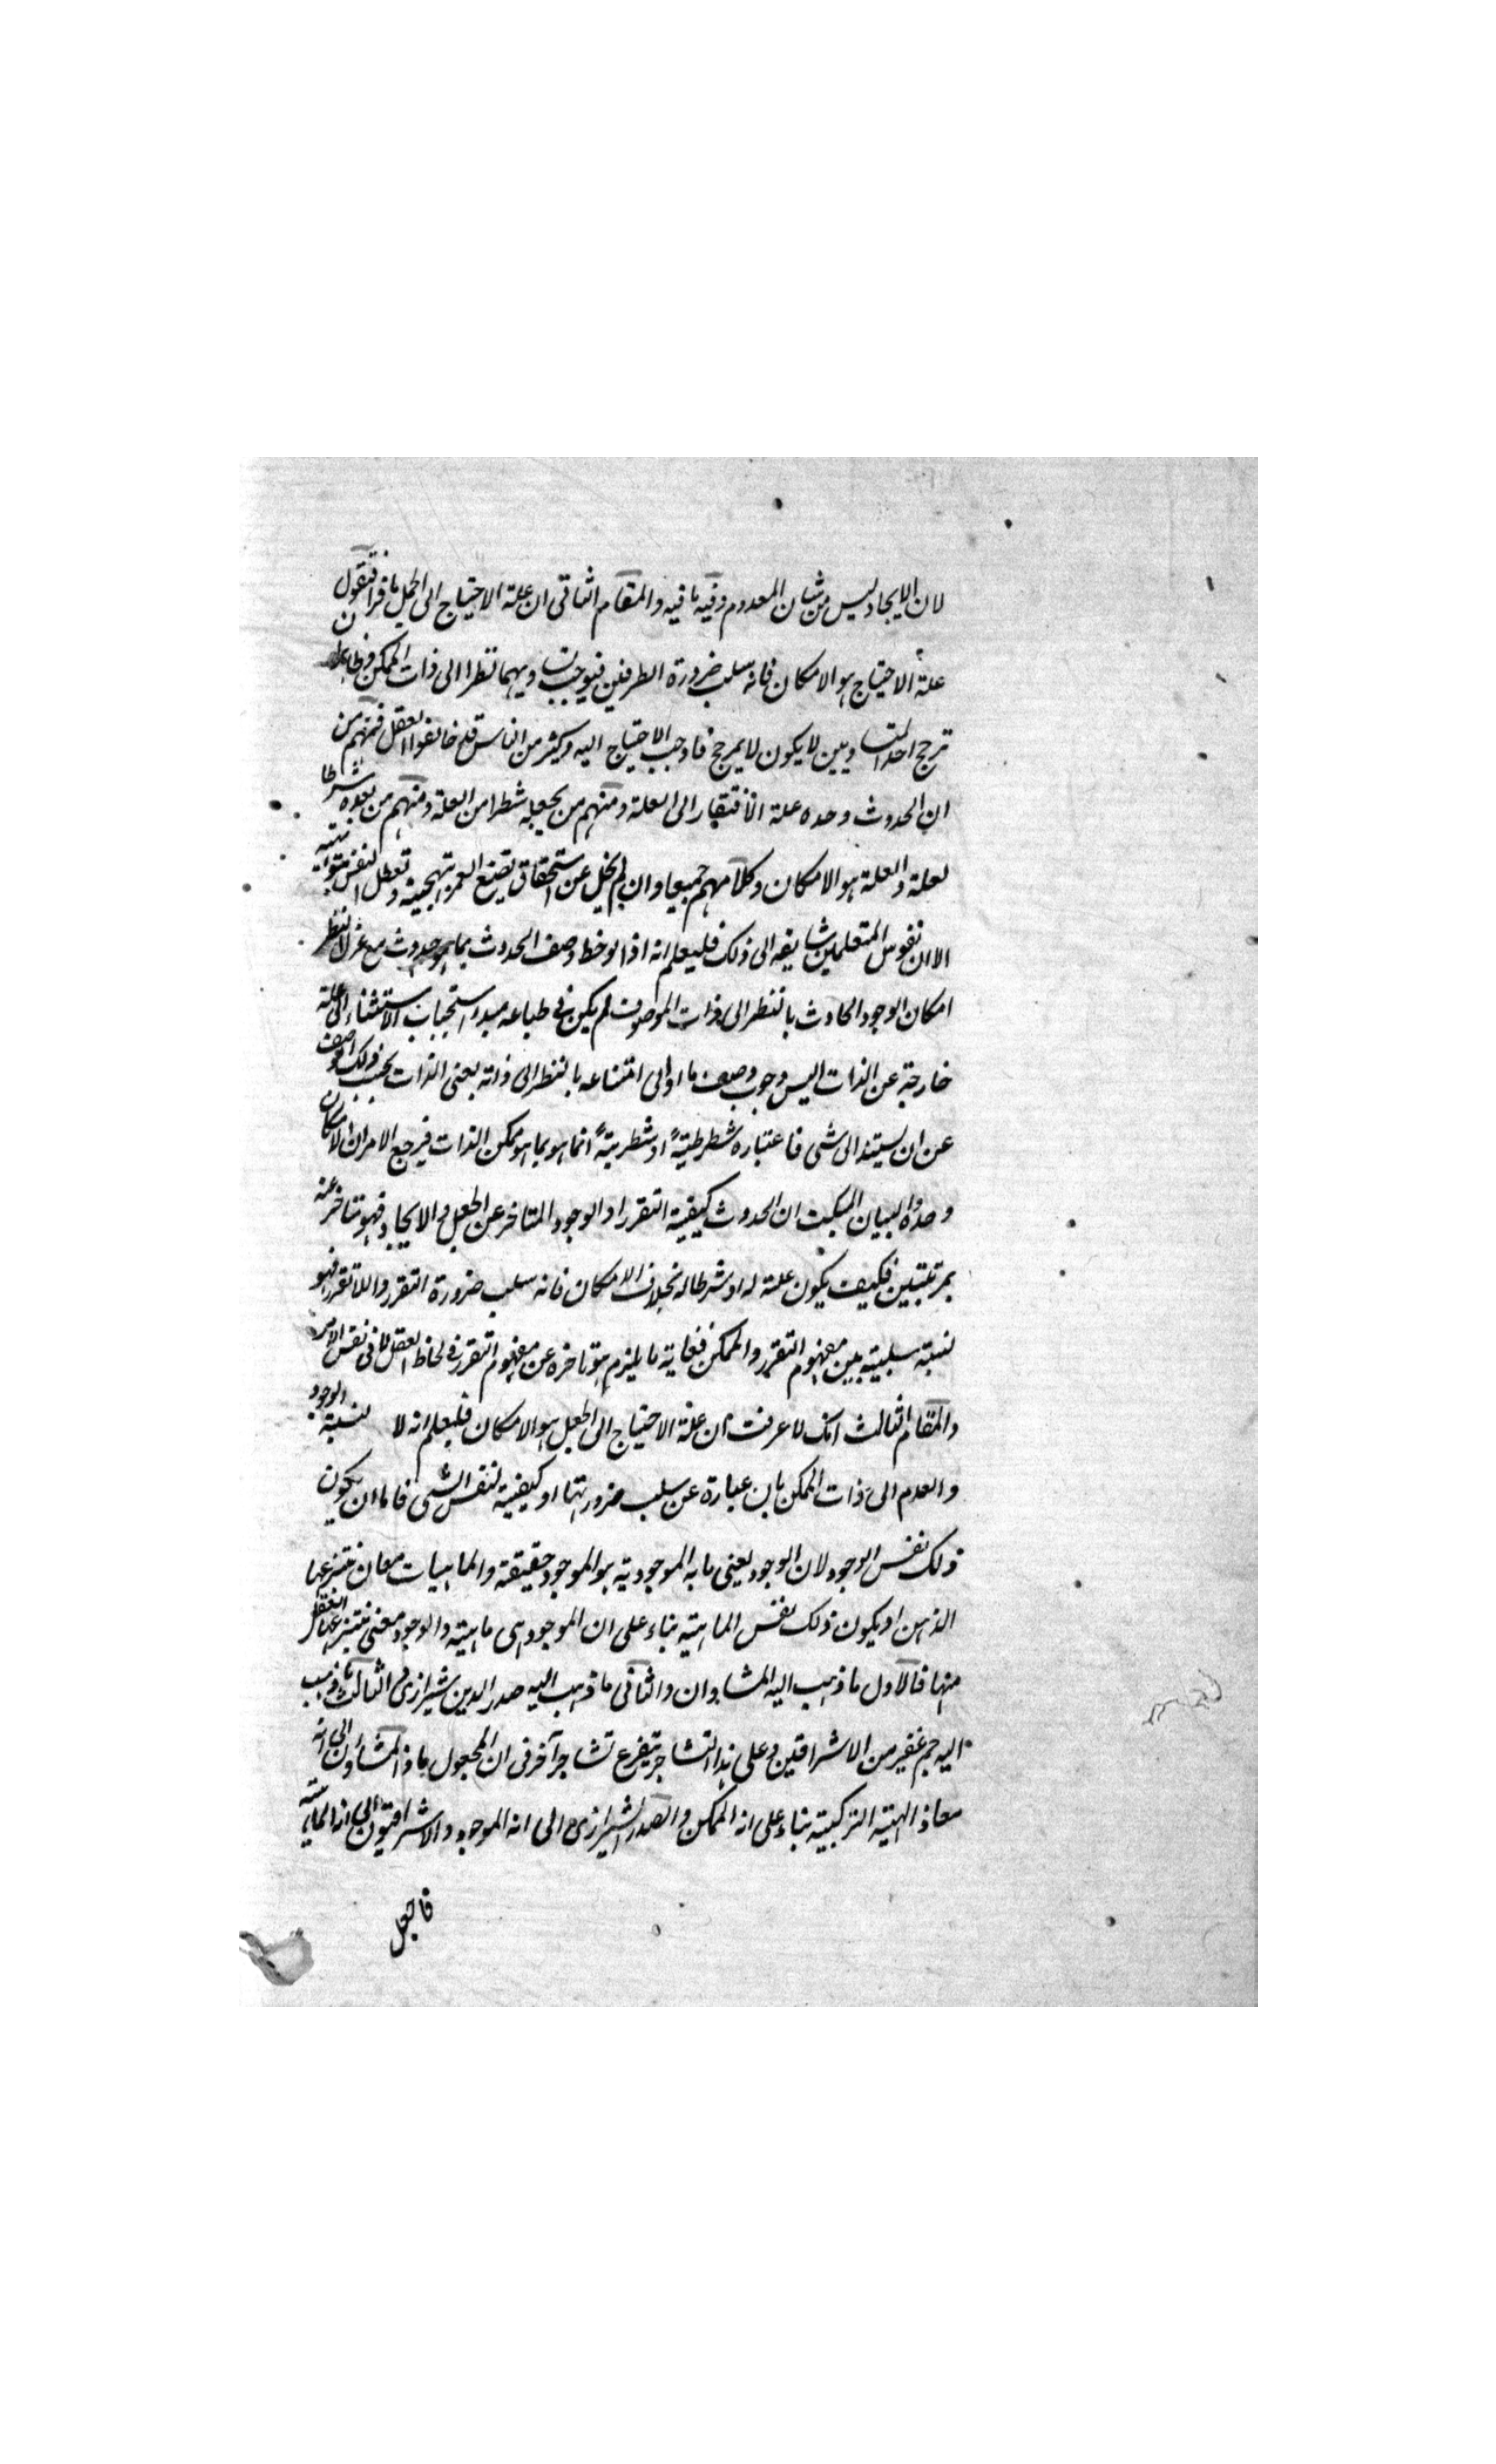 لان الايجاد ليس من شان المعدوم وفيه ما فيه والمقام الثانى ان علة الاحتياج الى الجعل ماذا فنقول
علة الاحتياج هو الامكان فانه سلب ضرورة الطرفين فيوجب تساويهما نظرا الى ذات الممكن وظاهر ان
ترجح احد المتساويين لا يكون لا بمرجح فاوجب الاحتياج اليه وكثير من الناس قد خالفوا العقل فمنهم من
ان الحدوث وحده علة الافتقار الى العلة ومنهم من يجعله شطرا من العلة ومنهم من يعده شرطا
لعلة والعلة هو الامكان وكلامهم جميعا وان لم يخل عن استحقاق تضيع العمر بتهجينه وتعطل النفس بتوهينه
الا ان نفوس المتعلمين شايقه الى ذلك فليعلم انه اذا لوخط وصف الحدوث بما هو حدوث مع عزل النظر
امكان الوجود الحادث بالنظر الى ذات الموصوف لم يكن فى طباعه مبدء استجباب الاستناد الى علة
خارجة عن الذات اليس وجوب وصف ما او الى امتناعه بالنظر الى ذاته يعنى الذات بحسب ذلك الوصف
عن ان يستند الى شى فاعتباره شرطيةً او شطريةً انما هو بما هو ممكن الذات فيرجع الامر الى الامكان
وحده والبيان المبكت ان الحدوث كيفية التقرر او الوجود المتاخر عن الجعل والايجاد فهو متاخر عنه
بمرتبتين فكيف يكون علة له او شرطا له بخلاف الامكان فانه سلب ضرورة التقرر واللاتقرر فهو
نسبته سلبيته بين مفهوم التقرر والممكن فغاية ما يلزم هو تاخره عن مفهوم التقرر فى لحاظ العقل لا فى نفس الامر
والمقام الثالث انك لما عرفت ان علة الاحتياج الى الجعل هو الامكان فليعلم انه لا نسبة الوجود
والعدم الى ذات الممكن بان عبارة عن سلب ضرورتها او كيفية لنفس الشى فاما ان يكون
ذلك نفس الوجود لان الوجود يعنى ما به الموجودية هو الموجود حقيقة والماهيات معان ينتزعها
الذهن او يكون ذلك نفس الماهية بناء على ان الموجود هى ماهية والوجود معنى ينتزع العقل
منها فالاول ما ذهب اليه المشاوان والثانى ما ذهب اليه صدر الدين شيرازى والثالث ما ذهب
اليه جم غفير من الاشراقين وعلى هذا التشاجر يتفرع تشاجر آخر فى ان المجعول ماذا المشاؤن الى انه
معاذ الهيئة التركيبية بناء على انه الممكن والصدر الشيرازى الى انه الموجود والاشراقيون الى انه الماهية
فالجعل